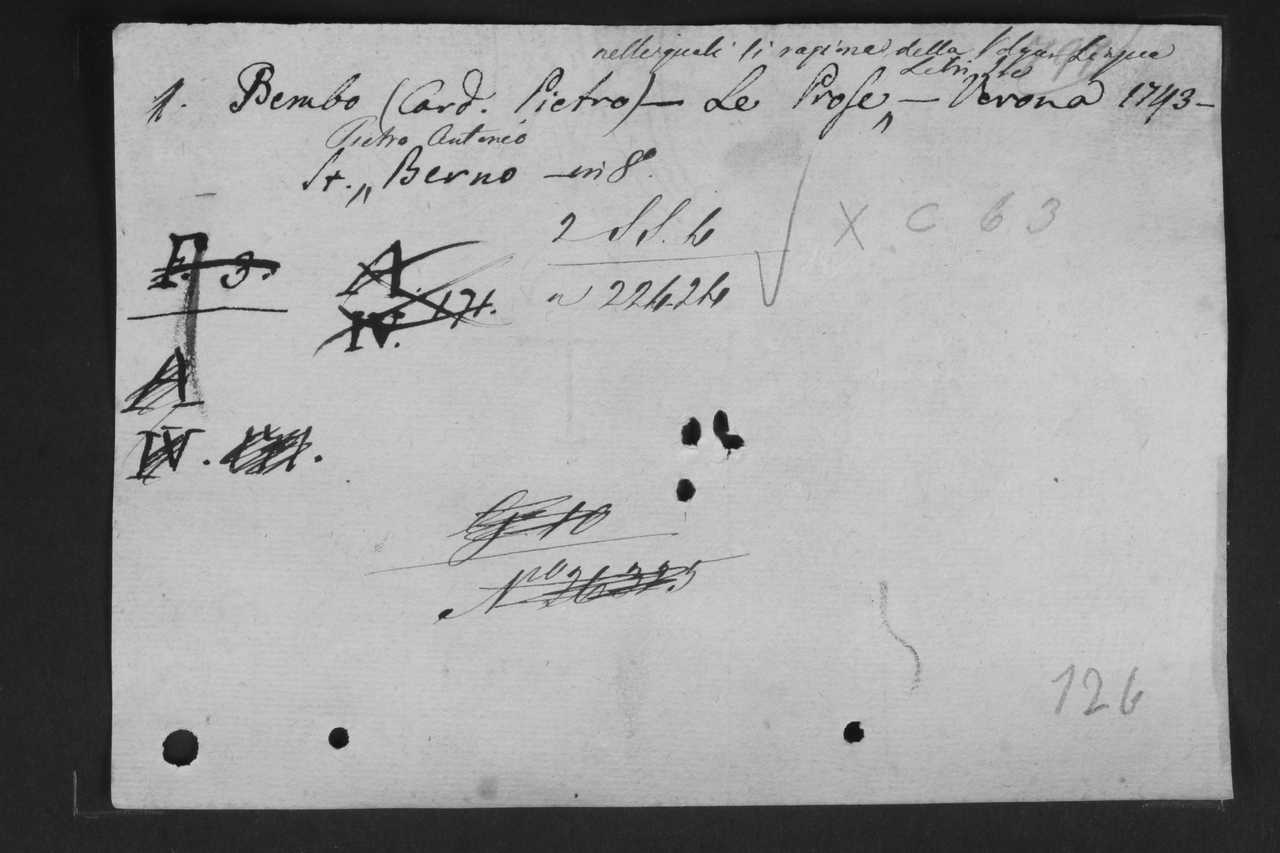 nelle quali si ragiona della Volgar Lingua
Libri tre
1. Bembo (Card. Pietro) — Le Prose „ — Verona 1743 —
Pietro Antonio
St. „ Berno — in 8°.
2 SS. 4
n 22424
X C 63
F. 3.
A
IV. 17.
A
IV.
G. 10
Nro 26325
126